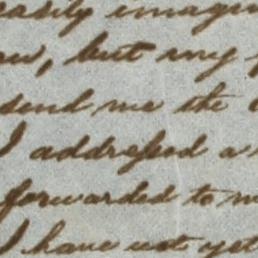 easily imagin
ow, but any
send me the
I addressed a
forwarded to m
I have not yet